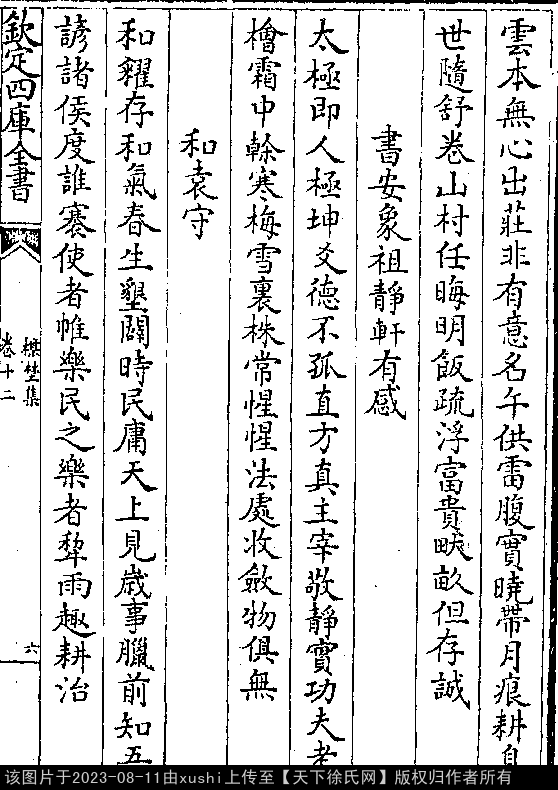 雲本無心出莊非有意名午供雷腹實曉帶月痕耕身
世隨舒卷山村任晦明飯疏浮富貴畎畝但存誠
書安象祖靜軒有感
太極即人極坤爻德不孤直方真主宰敬靜實功夫老
檜霜中榦寒梅雪裏株常惺惺法處收斂物俱無
和袁守
和糴存和氣春生墾闢時民庸天上見歲事臘前知五
諺諸侯度誰褰使者帷樂民之樂者犂雨趣耕治
欽定四庫全書
棋埜集
卷十二
六
该图片于2023-08-11由xushi上传至【天下徐氏网】版权归作者所有